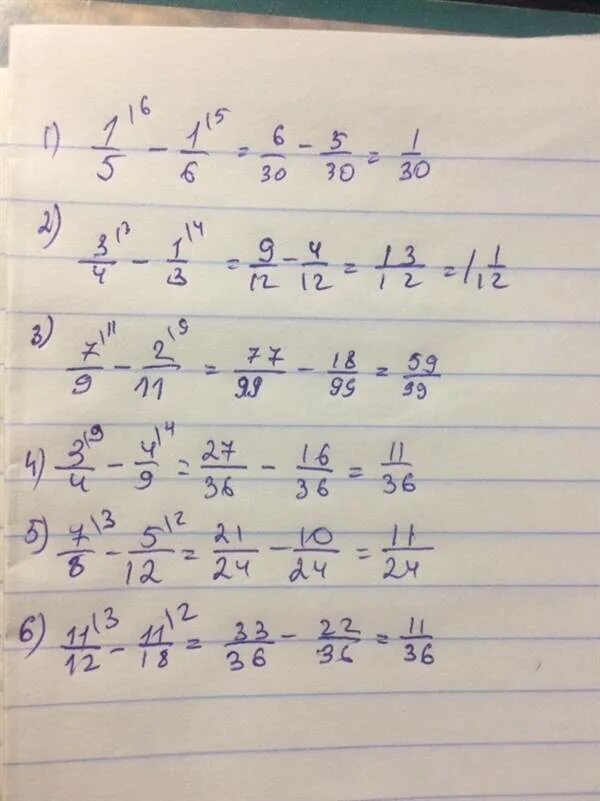 1) 1/5 \6 - 1/6 \5 = 6/30 - 5/30 = 1/30
2) 3/4 \3 - 1/3 \4 = 9/12 - 4/12 = 13/12 = 1 1/12
3) 7/9 \11 - 2/11 \9 = 77/99 - 18/99 = 59/99
4) 3/4 \9 - 4/9 \4 = 27/36 - 16/36 = 11/36
5) 7/8 \3 - 5/12 \2 = 21/24 - 10/24 = 11/24
6) 11/12 \3 - 11/18 \2 = 33/36 - 22/36 = 11/36